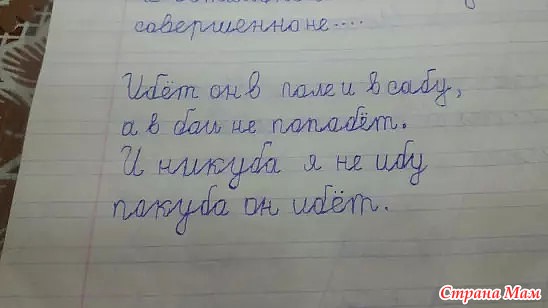 совершенно не....
Ибёт он в поле и в сабу,
а в бом не попабёт.
И никуба я не ибу
покуба он ибёт.
Страна Мам